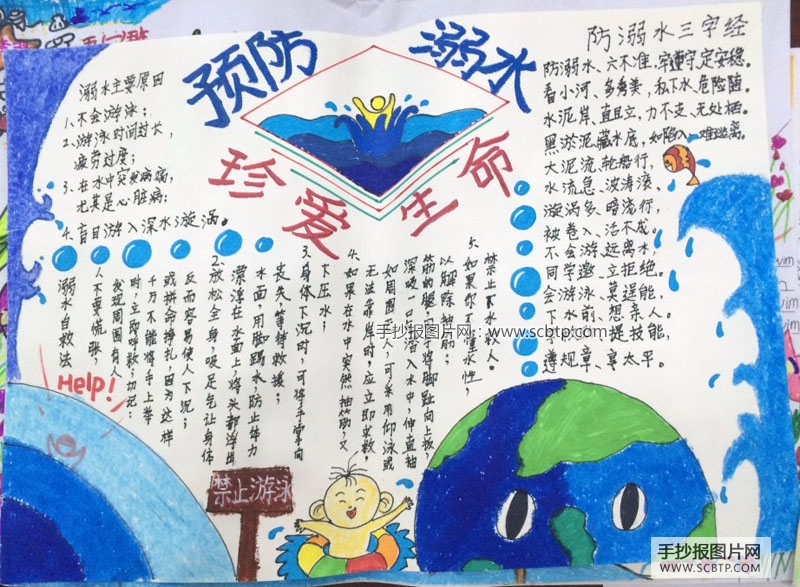 预防溺水
珍爱生命
溺水主要原因
1、不会游泳；
2、游泳时间过长，
疲劳过度；
3、在水中突发病病，
尤其是心脏病；
4、盲目游入深水漩涡。
防溺水三字经
防溺水、六不准、牢遵守、定安稳。
看小河、多秀美、水下水、危险隨。
水泥岸、直且立、力不支、无处栖。
黑淤泥、藏水底、如陷入、难逃离。
大泥流、轮船行，
水流急、波涛滚、
漩涡多、暗流行，
被卷入、活不成。
不会游、远离水，
同学邀、立拒绝。
会游泳、莫逞能，
下水前、想亲人。
提技能，
遵规章、享太平。
溺水自救法
1、不要慌张，
发现周围有人
时，立即呼救，切记：
千万不能将手上举
或拼命挣扎，因为这样
反而容易使人下沉；
2、放松全身，吸足气让身体
漂浮在水面上，将头部浮出
水面，用脚踢水，防止体力
丧失，等待救援；
3、身体下沉时，可将手掌向
下压水；
4、如果在水中突然抽筋，又
无法靠岸时，应立即求救。
如周围 ，可采用仰泳或
深吸一口 潜入水中，伸直抽
筋的腿， 将脚趾向上扳，
以解除抽筋；
5、如果你不 懂水性，
禁止下水救人。
手抄报图片网：www.scbtp.com
Help!
禁止游泳
手抄报图片网
WWW.SCBTP.COM